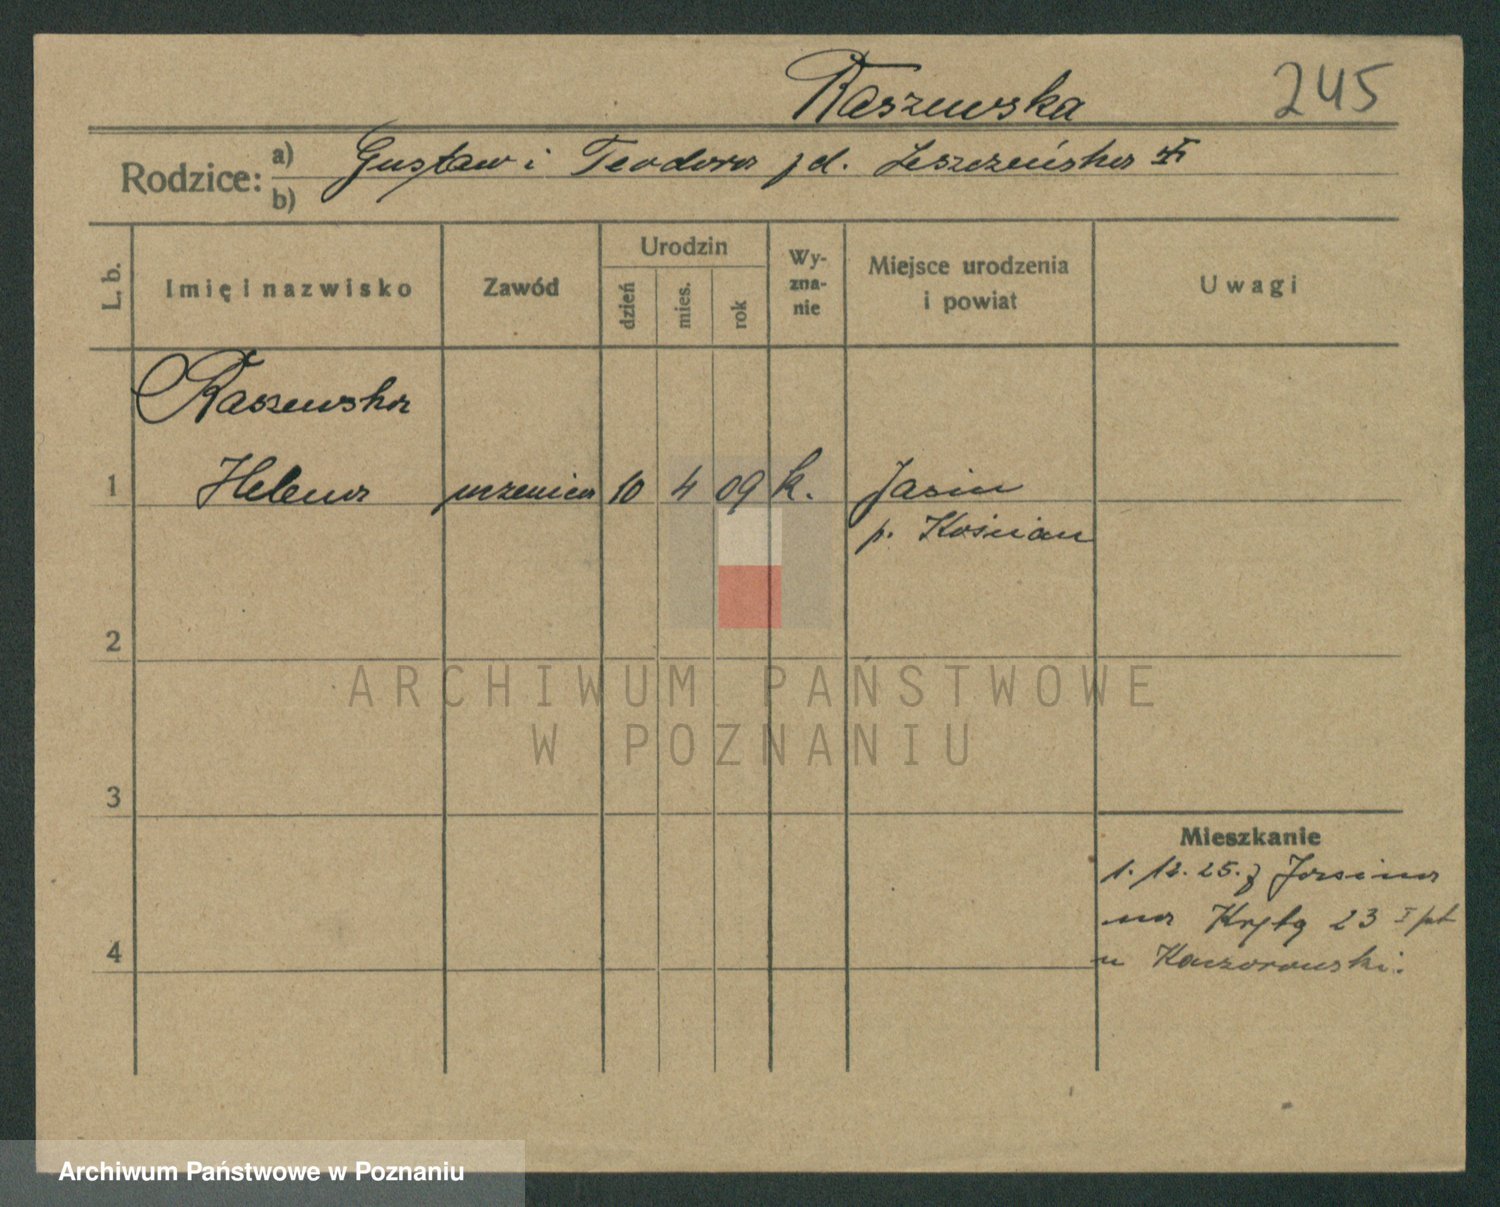 Raszewska 245
Rodzice: a) Gustaw i Teodora z d. Leszczeńska
b)
L. b.
Imię i nazwisko
Zawód
Urodzin
dzień
mies.
rok
Wy-
zna-
nie
Miejsce urodzenia
i powiat
Uwagi
Raszewska
1 Helena uczenica 10 4 09 k. Jasin
p. Kościan
2
ARCHIWUM PAŃSTWOWE
W POZNANIU
3
Mieszkanie
1. 12. 25. z Jasina
na 23 I pt
4 u Kaczorowski.
Archiwum Państwowe w Poznaniu